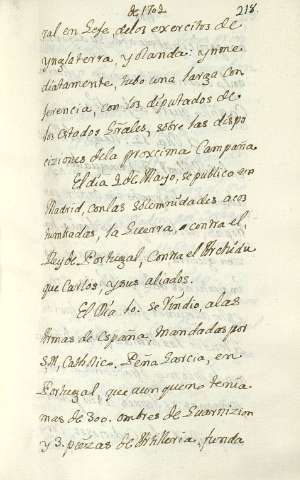 de 1702.
218.
ral en Gefe delos exercitos de
Ynglaterra, y olanda: ynme
diatamente, tubo una larga con
ferencia, con los diputados de
los estados Grãles, sobre las dispo
ciziones dela proxcima Campaña
El día 2 de Mayo, se publico en
Madrid, con las solemnidades acos
tumbradas, la Guerra, contra el
Rey de Portugal, Contra el Archidu
que Carlos, y sus aliados.
El Día 10. se rindio, alas
Armas de España, mandadas por
S.M. Catholica, Peña Garcia, en
Portugal, que aunquen tenia
mas de 300. ombres de Guarnizion
y 3. piezas de Artilleria, funda